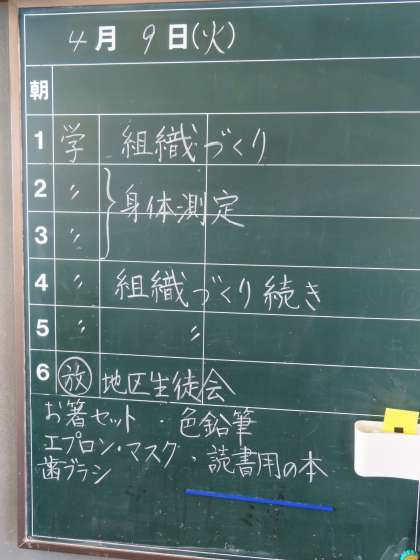 4月 9日(火)
朝
1 学 組織づくり
2 〃 身体測定
3 〃
4 〃 組織づくり続き
5 〃 〃
6 放 地区生徒会
お箸セット ・色鉛筆
エプロン・マスク ・読書用の本
歯ブラシ